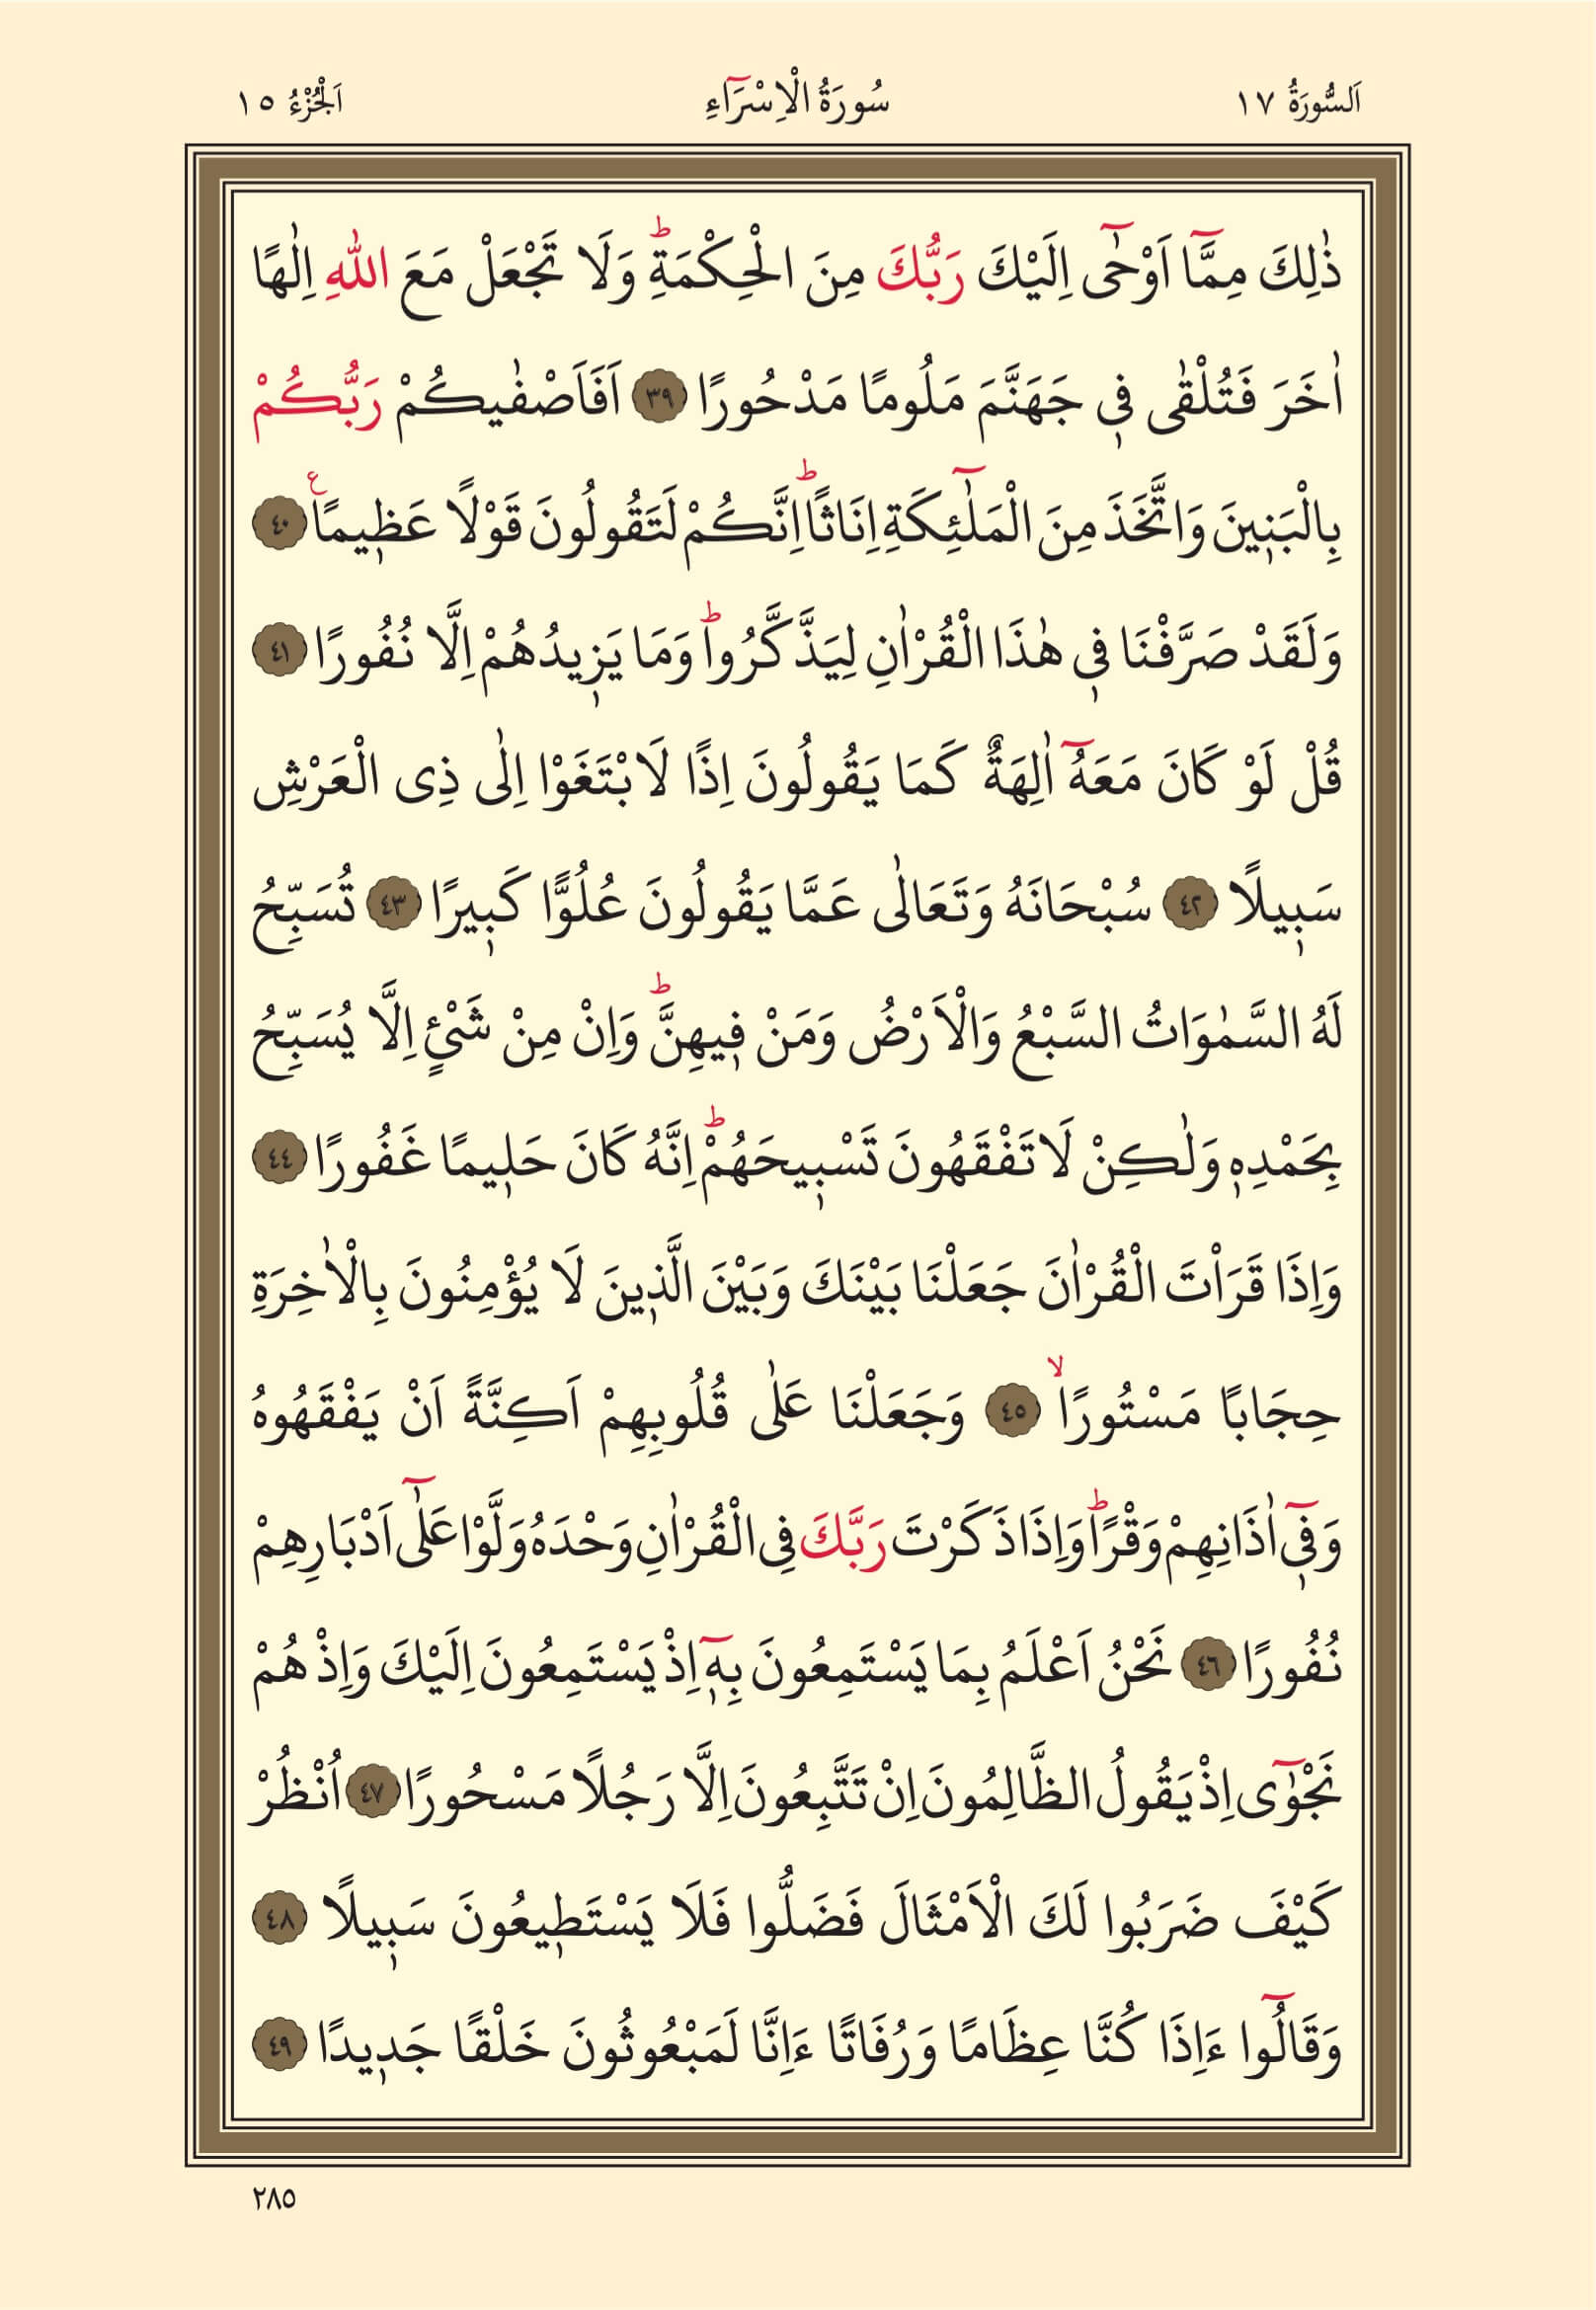 اَلسُّورَةُ ١٧
سُورَةُ الْاِسْرَٓاءِ
اَلْجُزْءُ ١٥
ذٰلِكَ مِمَّٓا اَوْحٰٓى اِلَيْكَ رَبُّكَ مِنَ الْحِكْمَةِۜ وَلَا تَجْعَلْ مَعَ اللّٰهِ اِلٰهًا
اٰخَرَ فَتُلْقٰى ف۪ي جَهَنَّمَ مَلُومًا مَدْحُورًا ٣٩ اَفَاَصْفٰيكُمْ رَبُّكُمْ
بِالْبَن۪ينَ وَاتَّخَذَ مِنَ الْمَلٰٓئِكَةِ اِنَاثًاۜ اِنَّكُمْ لَتَقُولُونَ قَوْلًا عَظ۪يمًا۟ ٤٠
وَلَقَدْ صَرَّفْنَا ف۪ي هٰذَا الْقُرْاٰنِ لِيَذَّكَّرُواۜ وَمَا يَز۪يدُهُمْ اِلَّا نُفُورًا ٤١
قُلْ لَوْ كَانَ مَعَهُٓ اٰلِهَةٌ كَمَا يَقُولُونَ اِذًا لَابْتَغَوْا اِلٰى ذِى الْعَرْشِ
سَب۪يلًا ٤٢ سُبْحَانَهُ وَتَعَالٰى عَمَّا يَقُولُونَ عُلُوًّا كَب۪يرًا ٤٣ تُسَبِّحُ
لَهُ السَّمٰوَاتُ السَّبْعُ وَالْاَرْضُ وَمَنْ ف۪يهِنَّۜ وَاِنْ مِنْ شَيْءٍ اِلَّا يُسَبِّحُ
بِحَمْدِه۪ وَلٰكِنْ لَا تَفْقَهُونَ تَسْب۪يحَهُمْۜ اِنَّهُ كَانَ حَل۪يمًا غَفُورًا ٤٤
وَاِذَا قَرَاْتَ الْقُرْاٰنَ جَعَلْنَا بَيْنَكَ وَبَيْنَ الَّذ۪ينَ لَا يُؤْمِنُونَ بِالْاٰخِرَةِ
حِجَابًا مَسْتُورًاۙ ٤٥ وَجَعَلْنَا عَلٰى قُلُوبِهِمْ اَكِنَّةً اَنْ يَفْقَهُوهُ
وَف۪ٓي اٰذَانِهِمْ وَقْرًاۜ وَاِذَا ذَكَرْتَ رَبَّكَ فِى الْقُرْاٰنِ وَحْدَهُ وَلَّوْا عَلٰٓى اَدْبَارِهِمْ
نُفُورًا ٤٦ نَحْنُ اَعْلَمُ بِمَا يَسْتَمِعُونَ بِه۪ٓ اِذْ يَسْتَمِعُونَ اِلَيْكَ وَاِذْ هُمْ
نَجْوٰٓى اِذْ يَقُولُ الظَّالِمُونَ اِنْ تَتَّبِعُونَ اِلَّا رَجُلًا مَسْحُورًا ٤٧ اُنْظُرْ
كَيْفَ ضَرَبُوا لَكَ الْاَمْثَالَ فَضَلُّوا فَلَا يَسْتَط۪يعُونَ سَب۪يلًا ٤٨
وَقَالُٓوا ءَاِذَا كُنَّا عِظَامًا وَرُفَاتًا ءَاِنَّا لَمَبْعُوثُونَ خَلْقًا جَد۪يدًا ٤٩
٢٨٥